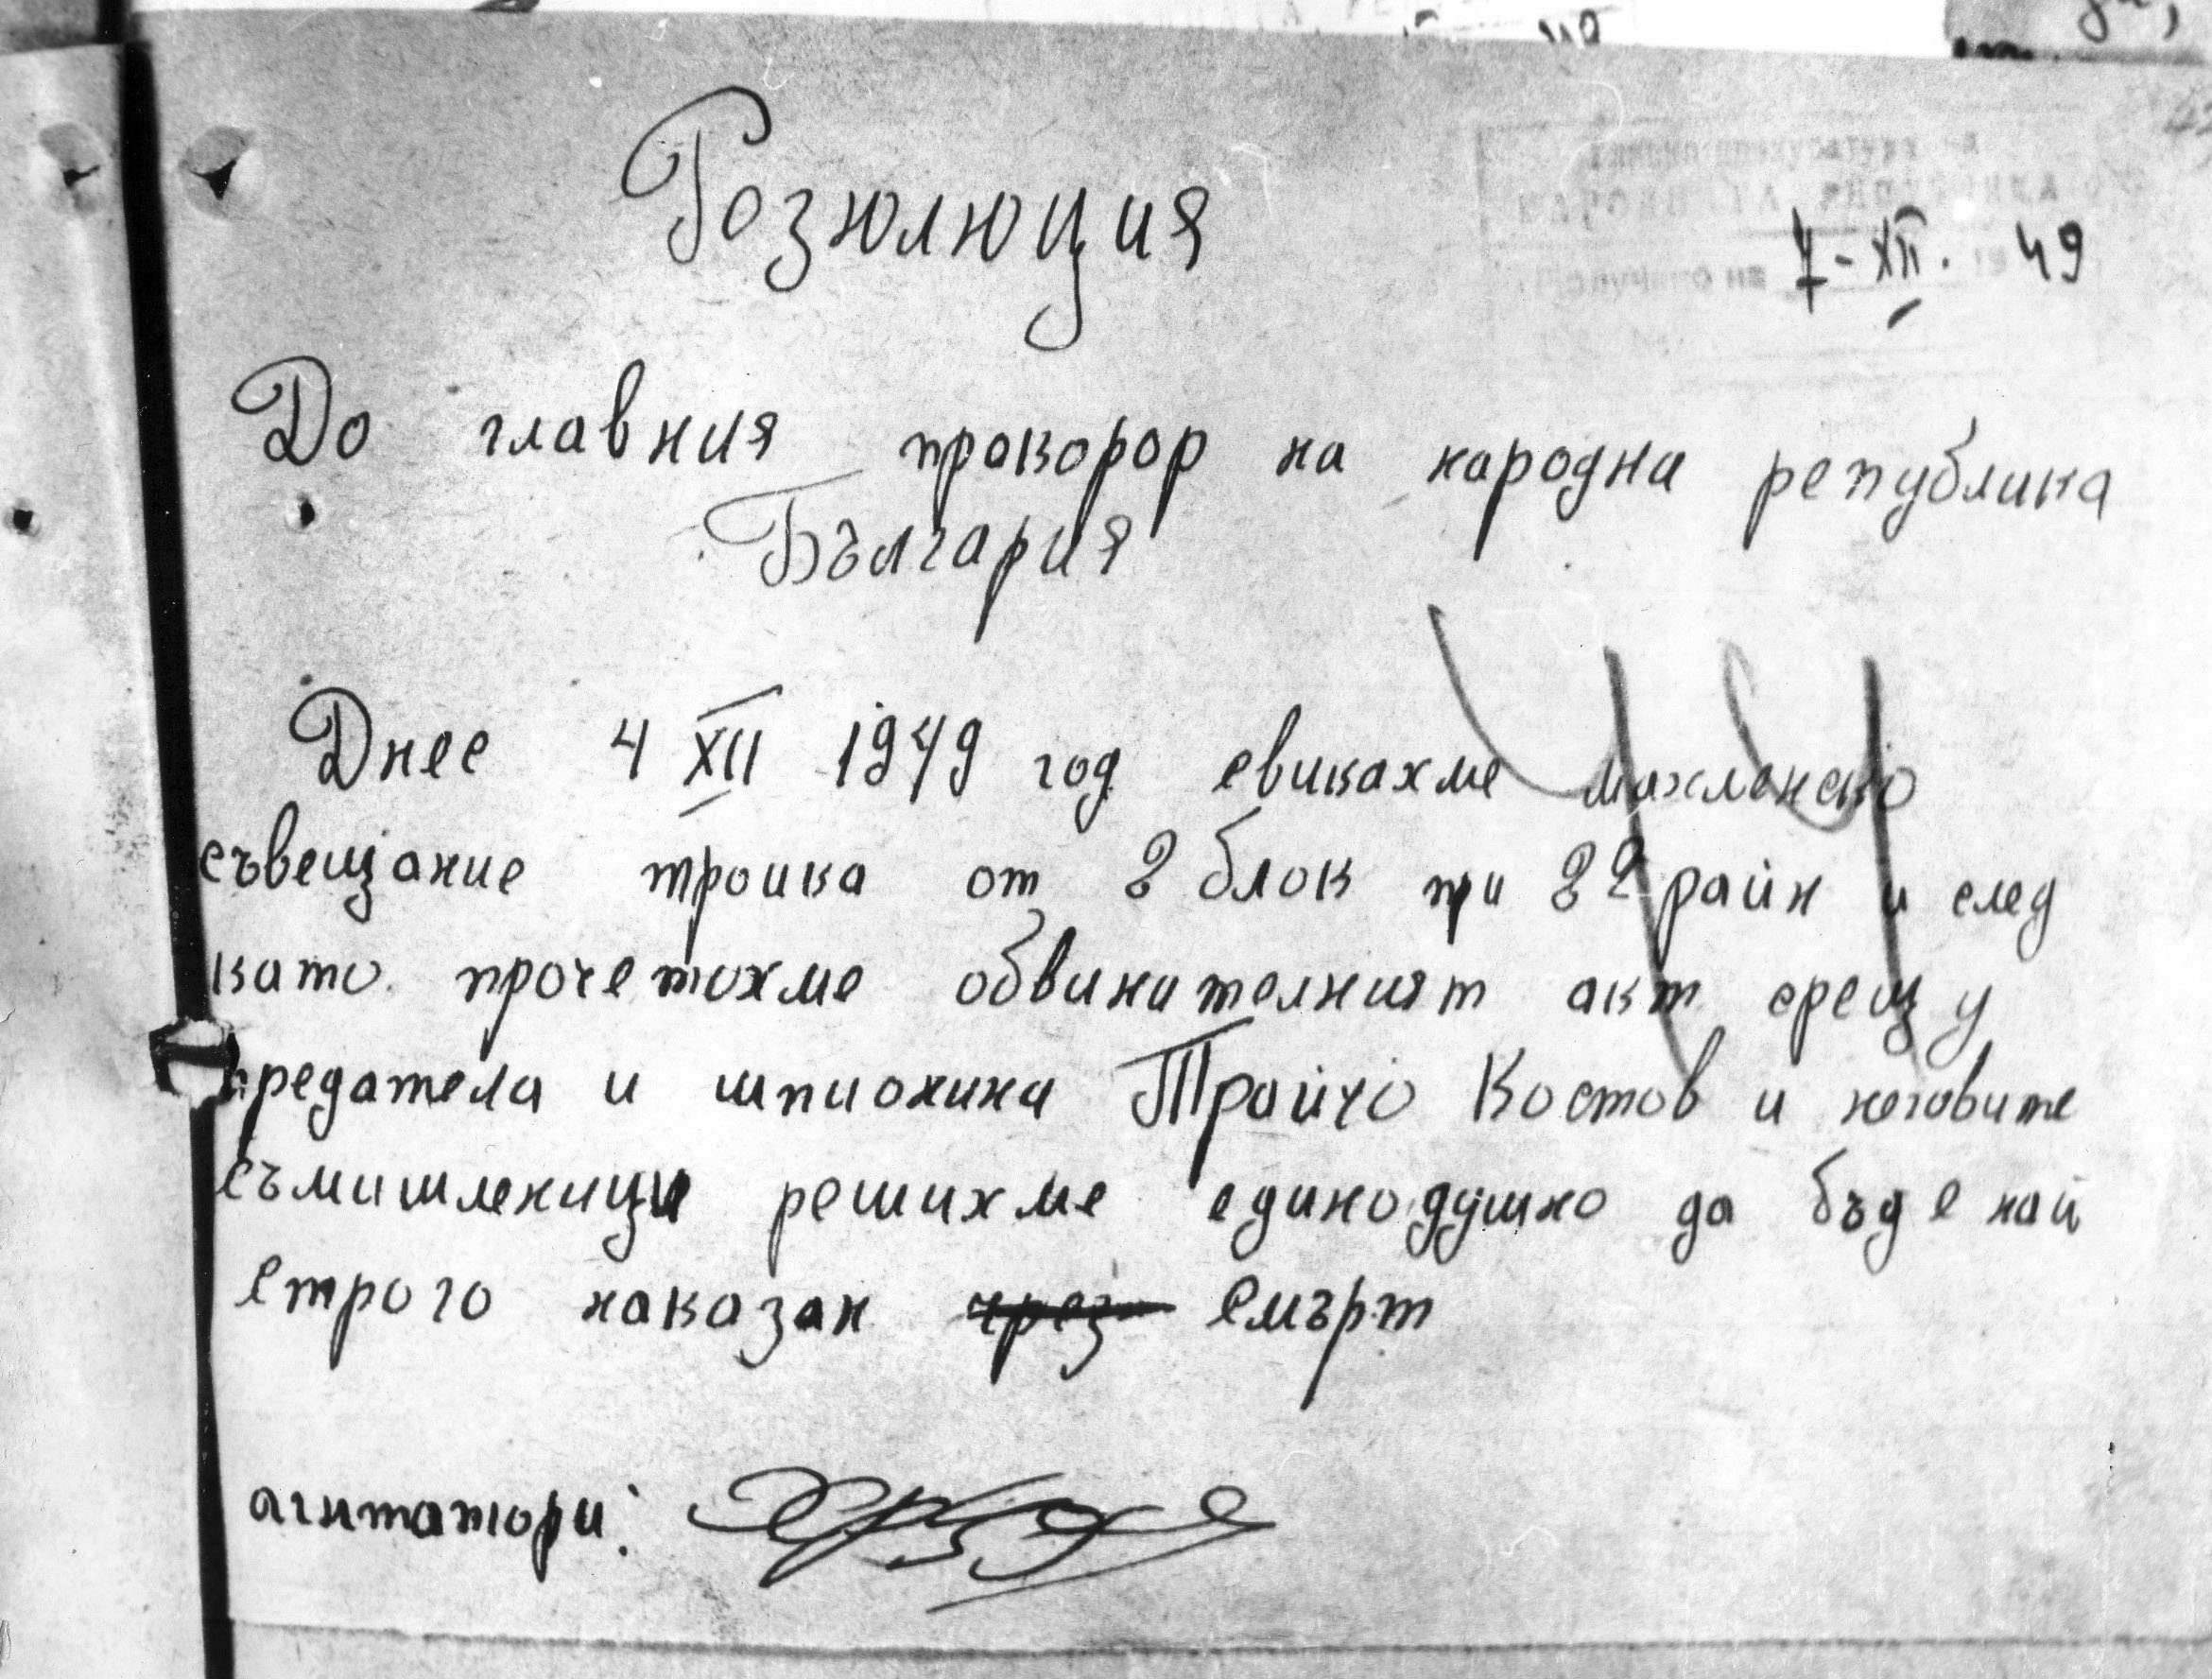 Розюлюция
7-XII. 49
До главния прокорор на народна република
България
Днес 4 XII 1949 год свикахме махленско
съвещание тройка от 2 блок при 22 райн и след
като прочетохме обвинителният акт срещу
предатела и шпионина Трайчо Костов и неговите
съмишленици решихме единодушно да бъде най
строго наказан чрез смърт
агитатори: